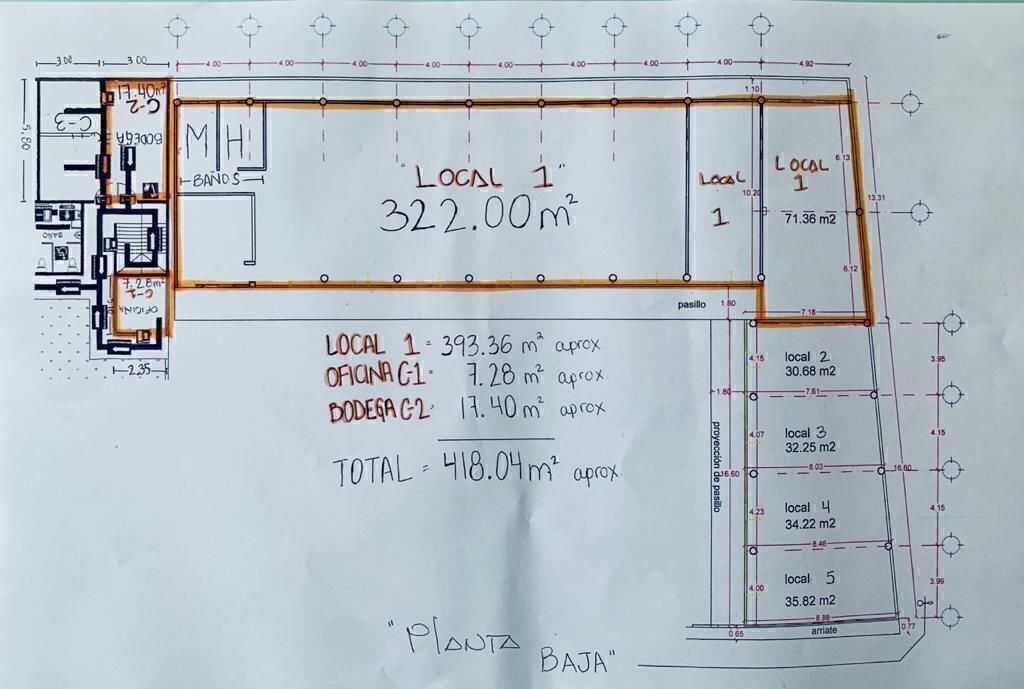 3.00
3.00
4.00
4.00
4.00
4.00
4.00
4.00
4.00
4.00
4.92
1.10
17.40m²
C-2
BODEGA
C-3
5.80
M H
BAÑOS
"LOCAL 1"
322.00m²
LOCAL
1
10.20
LOCAL
1
71.36 m2
6.13
13.31
6.12
BAÑO
7.28m²
C-1
OFICINA
2.35
pasillo
1.80
7.18
LOCAL 1 = 393.36 m² aprox.
OFICINA C-1 = 7.28 m² aprox.
BODEGA C-2 = 17.40 m² aprox
TOTAL = 418.04m² aprox.
4.15
local 2
30.68 m2
3.95
1.80
7.61
4.07
local 3
32.25 m2
4.15
proyección de pasillo
16.60
8.03
16.60
4.23
local 4
34.22 m2
4.15
8.46
4.00
local 5
35.82 m2
3.99
8.88
0.65
arriate
0.77
"PLANTA
BAJA"